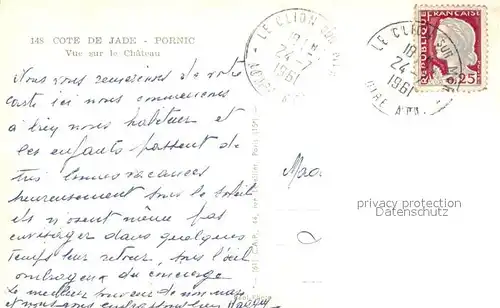 148 COTE DE JADE - PORNIC
Vue sur le Château
LE CLION SUR MER
18 H
24-7
1961
LOIRE ATL.
LE CLION SUR MER
18 H
24-
1961
LOIRE ATL.
REPUBLIQUE FRANÇAISE
0,25
Nous vous remercions de votre
carte ici nous commençons
à bien nous habituer et
les enfants profitent de
très bonnes vacances
heureusement sous le soleil
ils n'osent même pas
envisager dans quelques
temps leur retour, sous l'œil
ombrageux du concierge
Le meilleur souvenir de mon mari
et nous vous embrassons bien
Mad.
privacy protection
Datenschutz